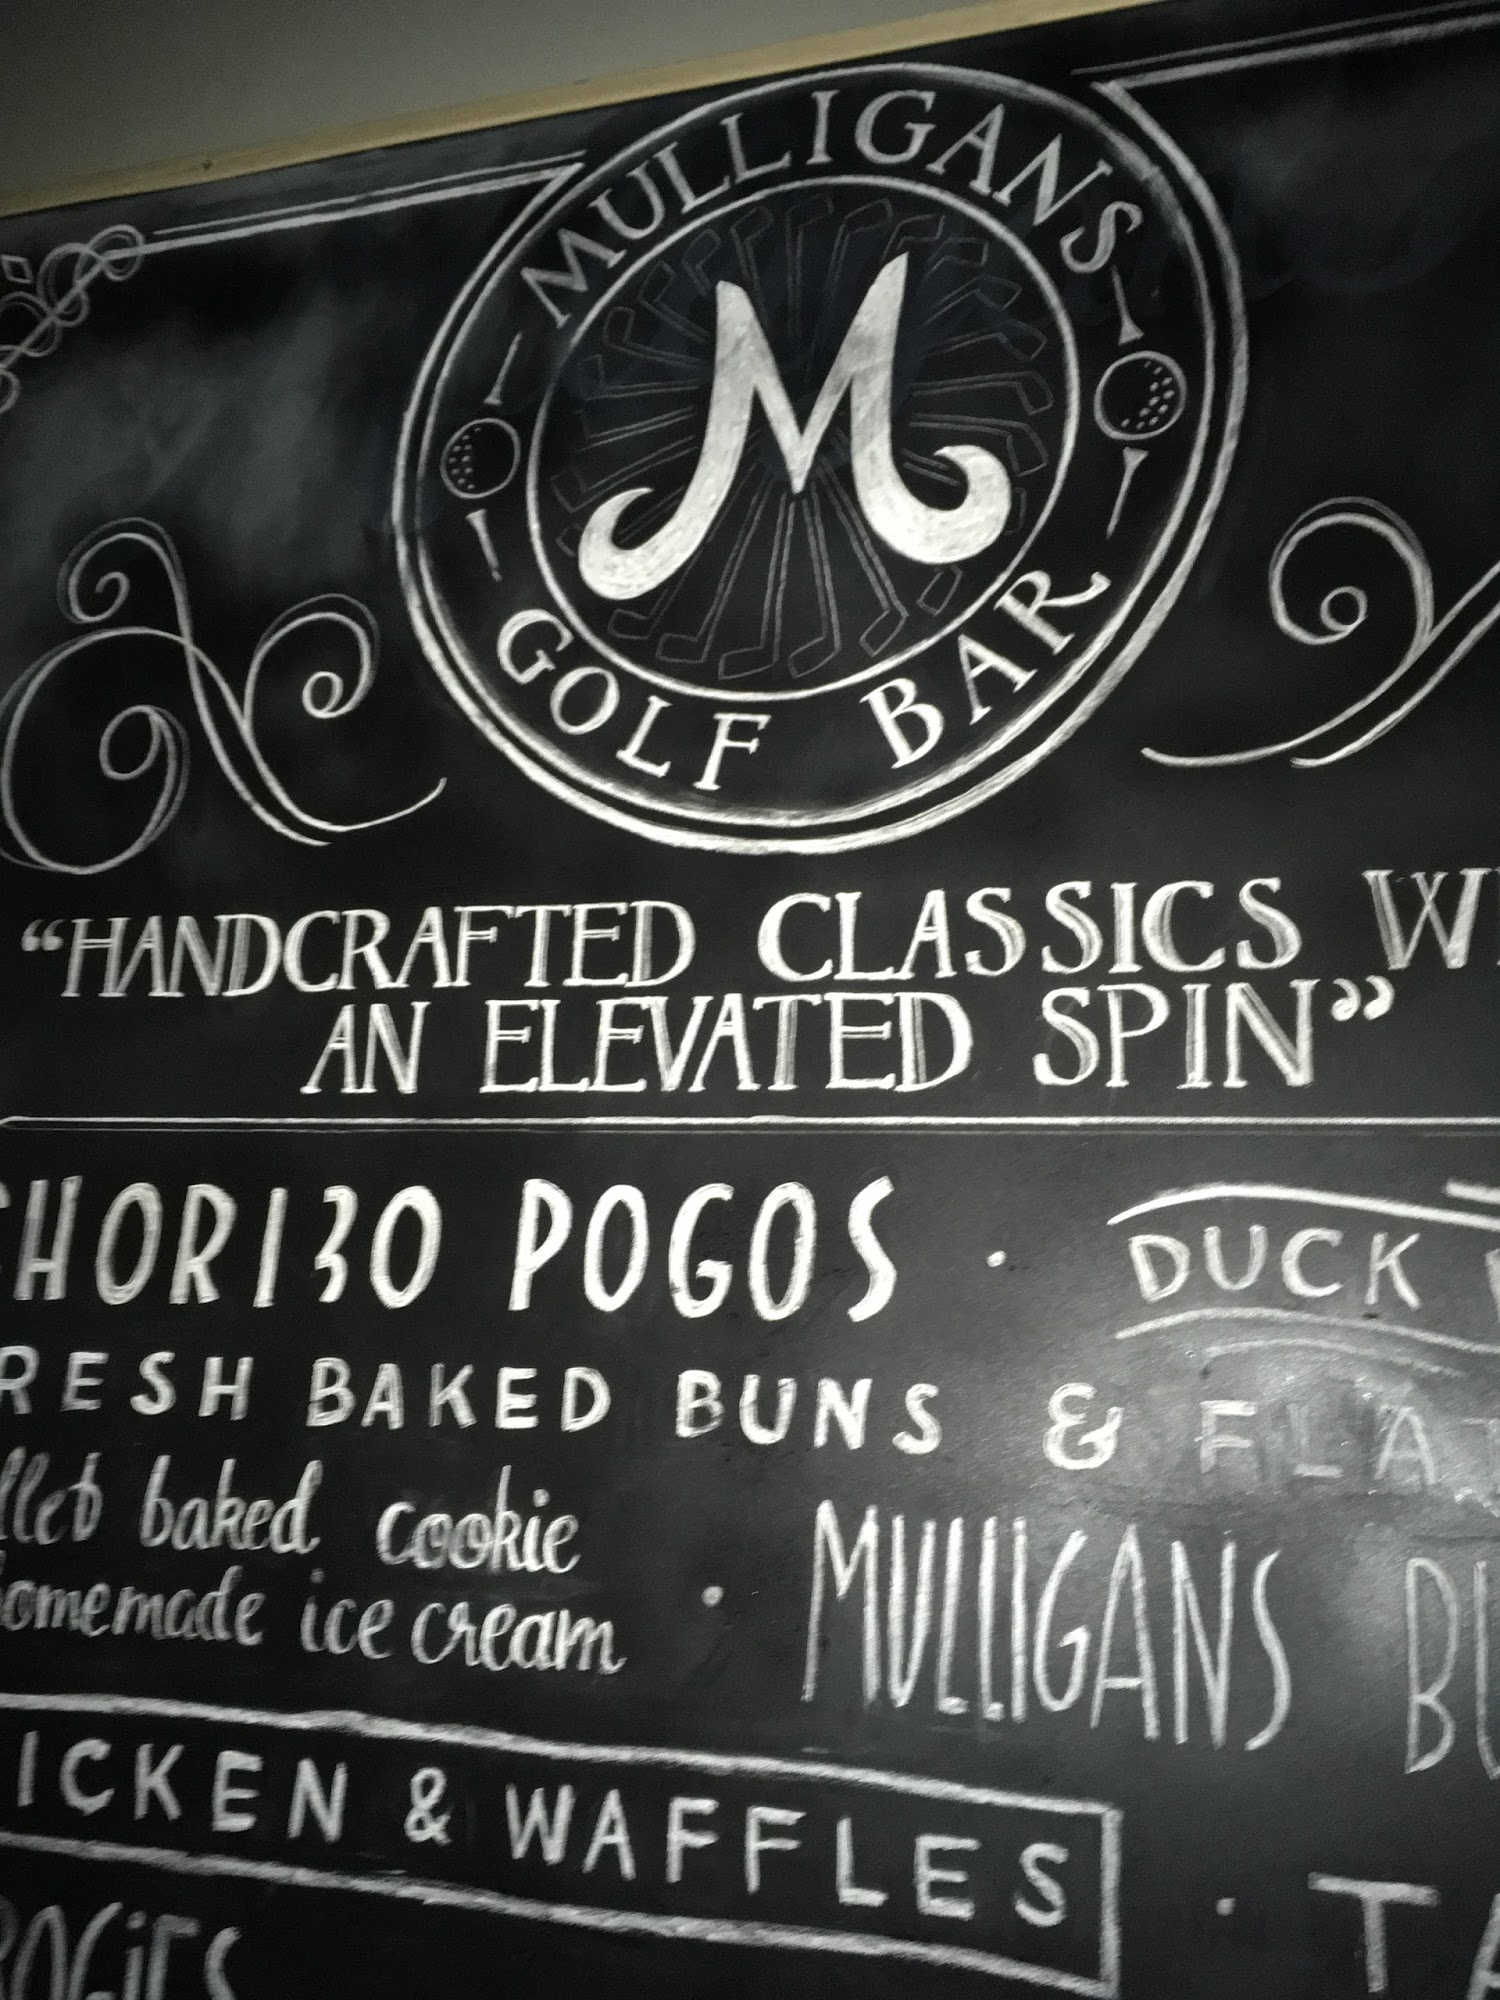 MULLIGANS
M
GOLF BAR
"HANDCRAFTED CLASSICS
AN ELEVATED SPIN"
HORIZO POGOS · DUCK
RESH BAKED BUNS & FLA
baked cookie
omemade ice cream · MULLIGANS
ICKEN & WAFFLES ·